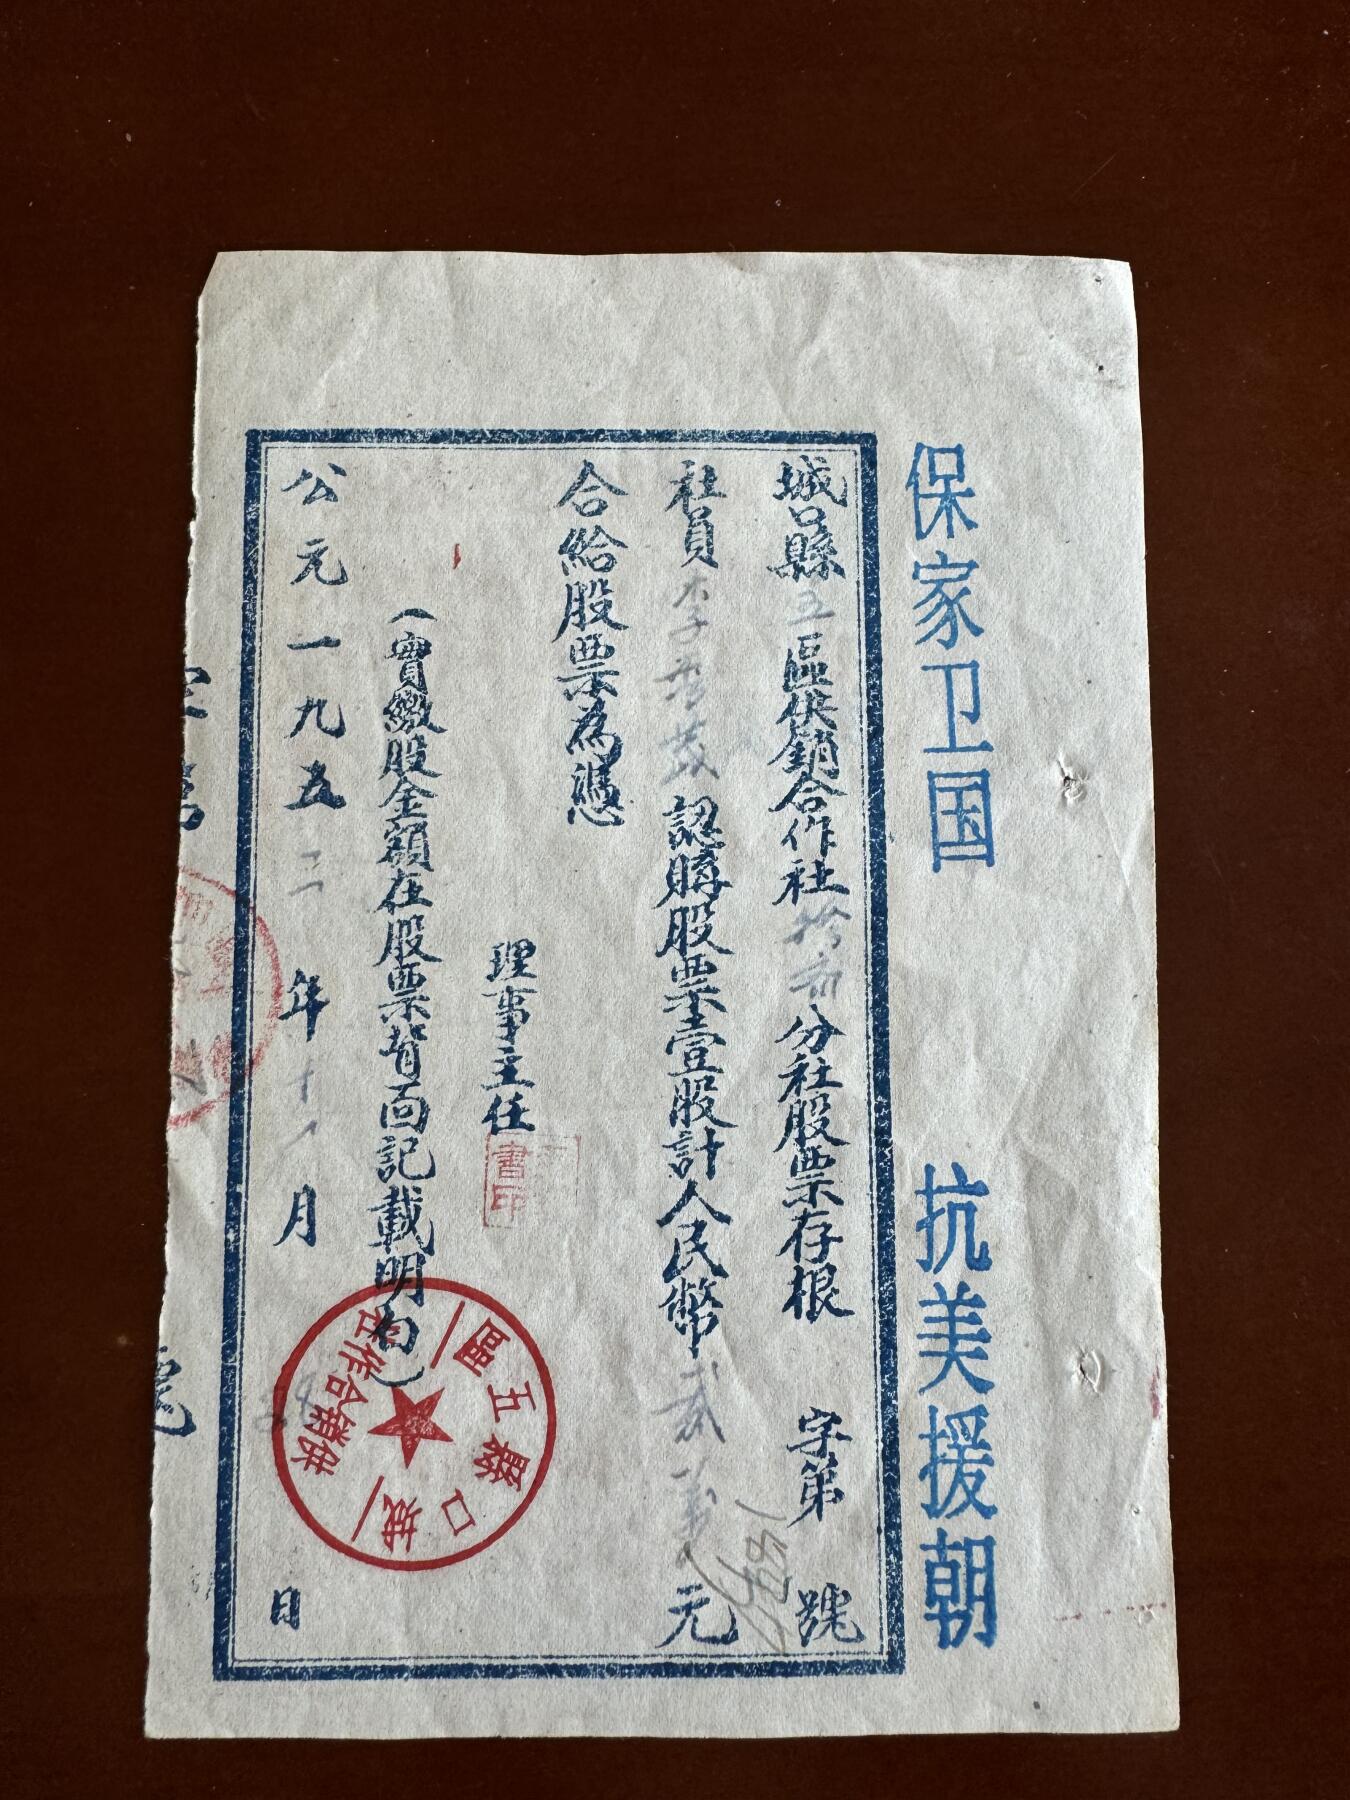 保家卫国 抗美援朝
城口縣五區供銷合作社拾 分社股票存根 字第 號
社員李 茂認購股票壹股計人民幣貳萬元
合給股票為憑
理事主任
書印
(實繳股金額在股票背面記載明白)
公元一九五二年十 月 日
城口縣五區
供銷合作社
號